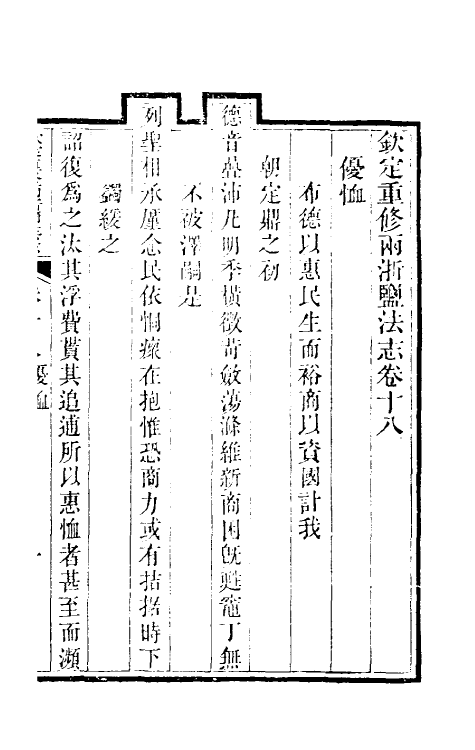 欽定重修兩浙鹽法志卷十八
優恤
布德以惠民生而裕商以資國計我
朝定鼎之初
德音疊沛凡明季橫徵苛斂蕩滌維新商困旣甦竈丁無
不被澤嗣是
列聖相承廑念民依恫瘝在抱惟恐商力或有拮据時下
蠲緩之
詔復爲之汰其浮費貰其追逋所以惠恤者甚至而瀕
優恤 一